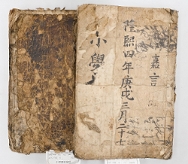 嘉言
隆熙四年庚戌三月二十
小學